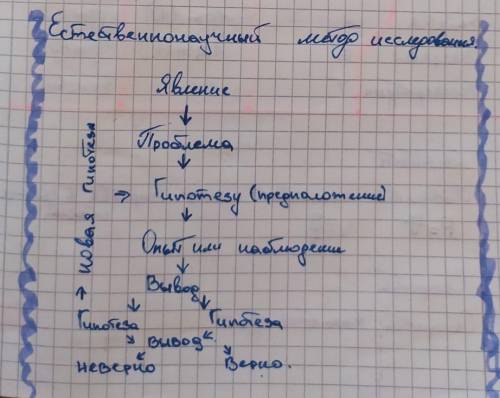 Естественнонаучный метод исследования.
Явление
Проблема
Новая гипотеза
Гипотезу (предположение)
Опыт или наблюдение
Вывод
Гипотеза Гипотеза
вывод
неверно Верно.